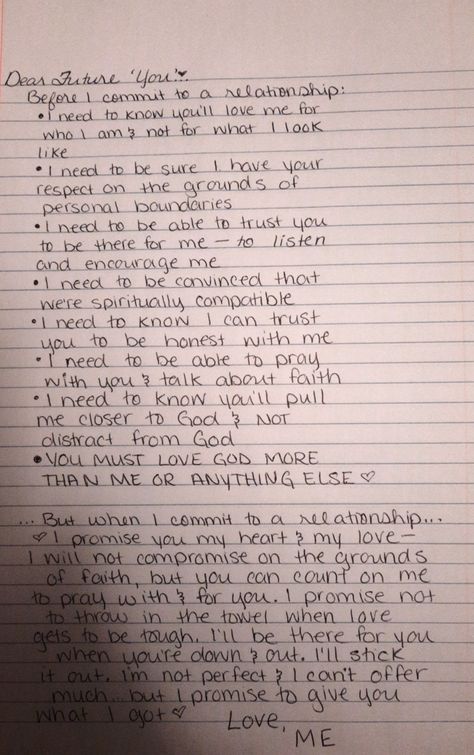 Dear Future 'You'♥
Before I commit to a relationship:
• I need to know you'll love me for
who I am & not for what I look
like
• I need to be sure I have your
respect on the grounds of
personal boundaries
• I need to be able to trust you
to be there for me — to listen
and encourage me
• I need to be convinced that
we're spiritually compatible
• I need to know I can trust
you to be honest with me
• I need to be able to pray
with you & talk about faith
• I need to know you'll pull
me closer to God & NOT
distract from God
• YOU MUST LOVE GOD MORE
THAN ME OR ANYTHING ELSE ♡
... But when I commit to a relationship...
♡ I promise you my heart & my love —
I will not compromise on the grounds
of faith, but you can count on me
to pray with & for you. I promise not
to throw in the towel when love
gets to be tough. I'll be there for you
when you're down & out. I'll stick
it out. I'm not perfect & I can't offer
much... but I promise to give you
what I got ♡
Love,
ME